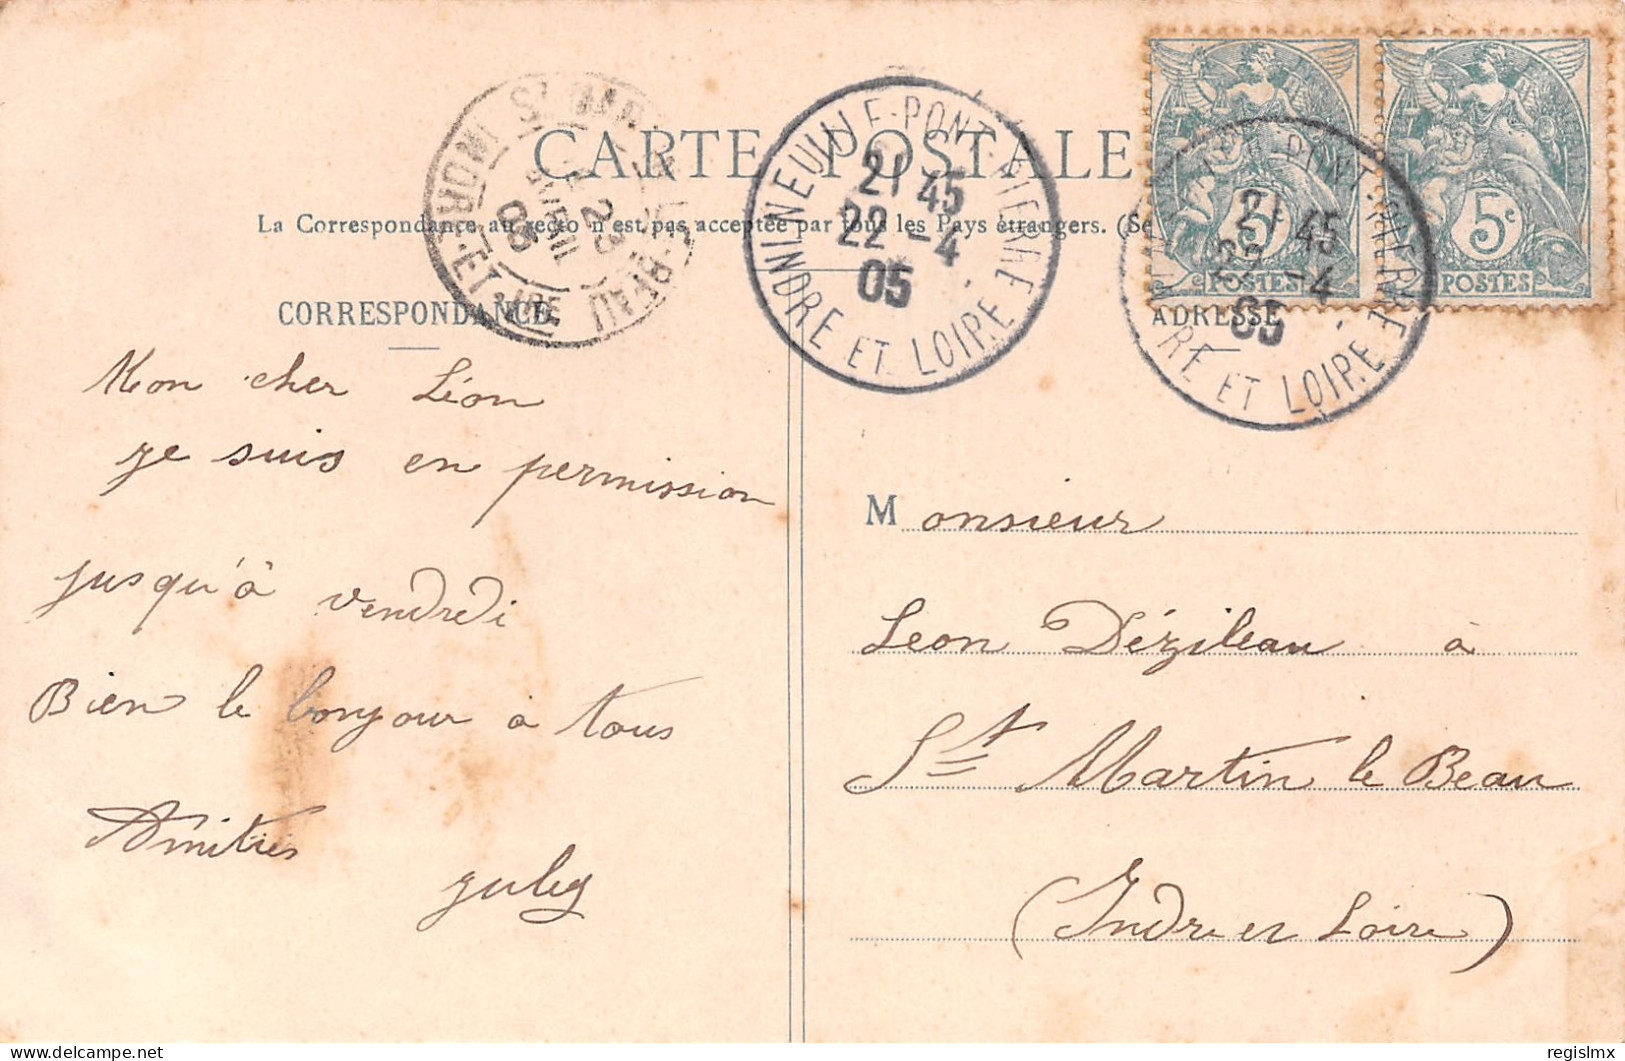 CARTE POSTALE
La Correspondance au recto n'est pas acceptée par tous les Pays étrangers. (Se
CORRESPONDANCE
ADRESSE
NEUILLE-PONT-PIERRE
21 45
22 -4
05
INDRE ET LOIRE
PONT-PIERRE
21 45
22 -4
05
ET LOIRE
INDRE-ET-LRE
23
AVRIL
05
5c
POSTES
5c
POSTES
Mon cher Léon
je suis en permission
jusqu'à vendredi
Bien le bonjour a tous
Amitiés
Jules
Monsieur
Leon Dézileau à
St Martin le Beau
(Indre et Loire)
delcampe.net
regislmx